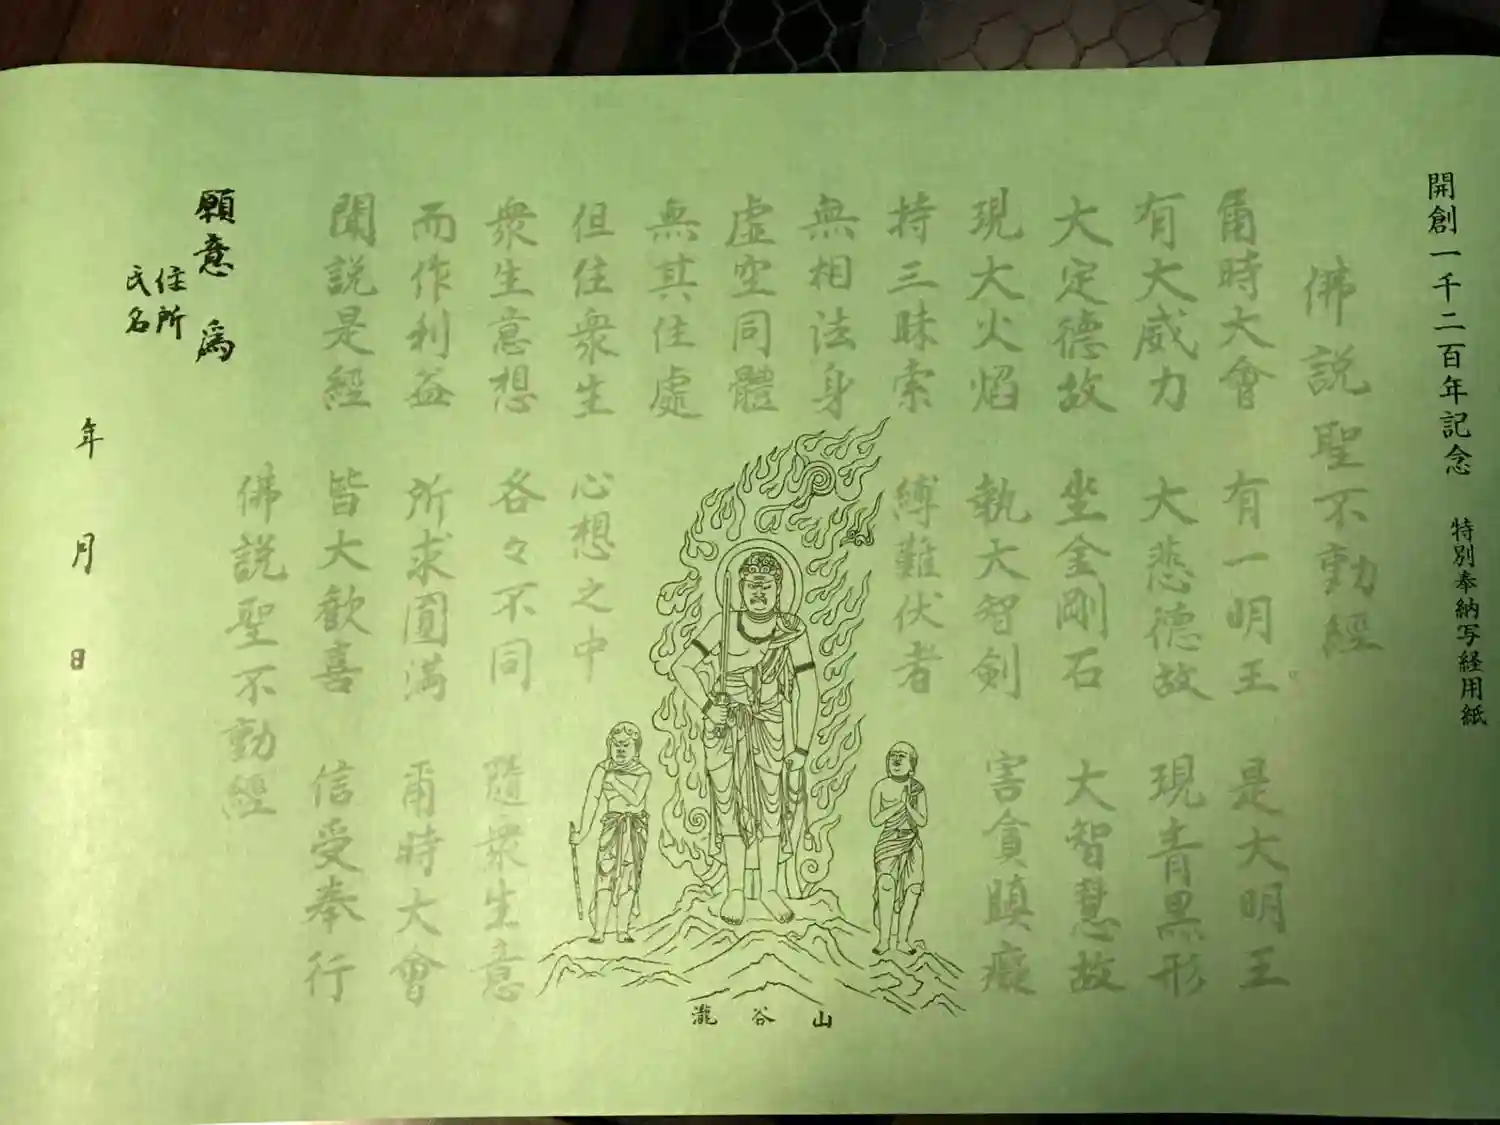 開創一千二百年記念 特別奉納写経用紙
佛説聖不動經
爾時大會 有一明王 是大明王
有大威力 大悲德故 現青黒形
大定德故 坐金剛石 大智慧故
現大火焰 執大智剣 害貪瞋癡
持三昧索 縛難伏者
無相法身
虚空同體
無其住處
但住衆生 心想之中
衆生意想 各々不同 隨衆生意
而作利益 所求圓満 爾時大會
聞説是經 皆大歓喜 信受奉行
佛説聖不動經
願意 為
住所
氏名
年 月 日
瀧谷山